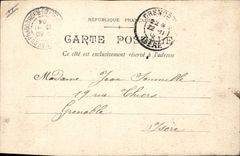 RÉPUBLIQUE FRANÇAISE
GRENOBLE
ISÈRE
CARTE POSTALE
Ce côté est exclusivement réservé à l'adresse
Madame Jean
19 rue Thiers
Grenoble
Isère